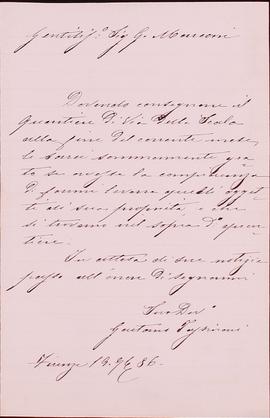 Gentilis.º Sig G. Marconi
Dovendo consegnare il
Quartiere Di Via Della Scala
alla fine Del corrente mese,
le sarei sommamente gra
to se avesse la compiacenza
D. farmi levare quelli ogget
ti di sua proprietà, e che
si trovano nel sopra Dº quar
tiere.
In attesa di sue notizie
passo all'onore Di segnarmi
Suo Devº
Gaetano
Firenze 19. 86.